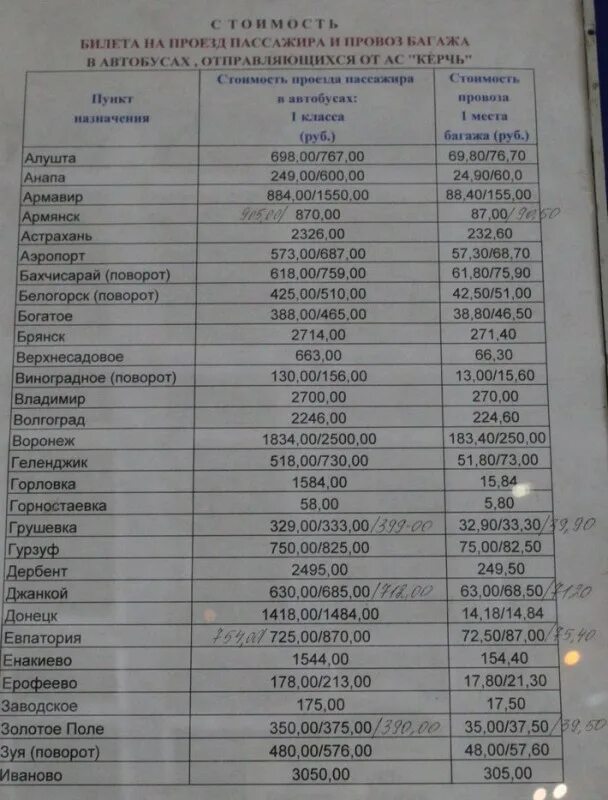 СТОИМОСТЬ
БИЛЕТА НА ПРОЕЗД ПАССАЖИРА И ПРОВОЗ БАГАЖА
В АВТОБУСАХ , ОТПРАВЛЯЮЩИХСЯ ОТ АС "КЕРЧЬ"
Пункт назначения Стоимость проезда пассажира в автобусах: 1 класса (руб.) Стоимость провоза 1 места багажа (руб.)
Алушта 698,00/767,00 69,80/76,70
Анапа 249,00/600,00 24,90/60,0
Армавир 884,00/1550,00 88,40/155,00
Армянск 905,00/ 870,00 87,00/90,50
Астрахань 2326,00 232,60
Аэропорт 573,00/687,00 57,30/68,70
Бахчисарай (поворот) 618,00/759,00 61,80/75,90
Белогорск (поворот) 425,00/510,00 42,50/51,00
Богатое 388,00/465,00 38,80/46,50
Брянск 2714,00 271,40
Верхнесадовое 663,00 66,30
Виноградное (поворот) 130,00/156,00 13,00/15,60
Владимир 2700,00 270,00
Волгоград 2246,00 224,60
Воронеж 1834,00/2500,00 183,40/250,00
Геленджик 518,00/730,00 51,80/73,00
Горловка 1584,00 15,84
Горностаевка 58,00 5,80
Грушевка 329,00/333,00/399-00 32,90/33,30/39,90
Гурзуф 750,00/825,00 75,00/82,50
Дербент 2495,00 249,50
Джанкой 630,00/685,00/712,00 63,00/68,50/71,20
Донецк 1418,00/1484,00 14,18/14,84
Евпатория 754,00/ 725,00/870,00 72,50/87,00/75,40
Енакиево 1544,00 154,40
Ерофеево 178,00/213,00 17,80/21,30
Заводское 175,00 17,50
Золотое Поле 350,00/375,00/390,00 35,00/37,50/39,50
Зуя (поворот) 480,00/576,00 48,00/57,60
Иваново 3050,00 305,00